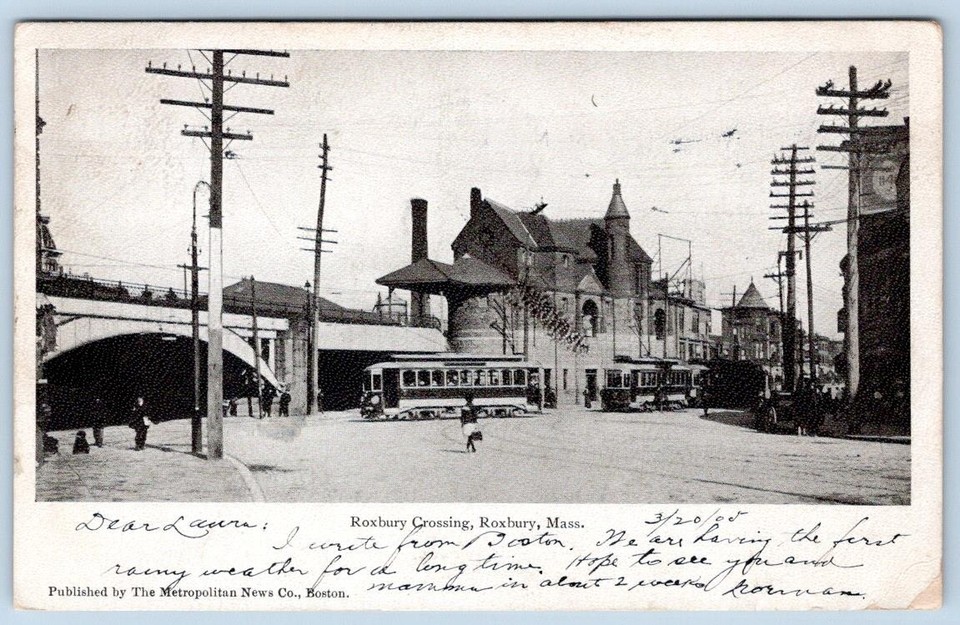 Roxbury Crossing, Roxbury, Mass.
3/20/05
Dear Laura:
I write from Boston. We are having the first
rainy weather for a long time. Hope to see you and
mamma in about 2 weeks Norman.
Published by The Metropolitan News Co., Boston.